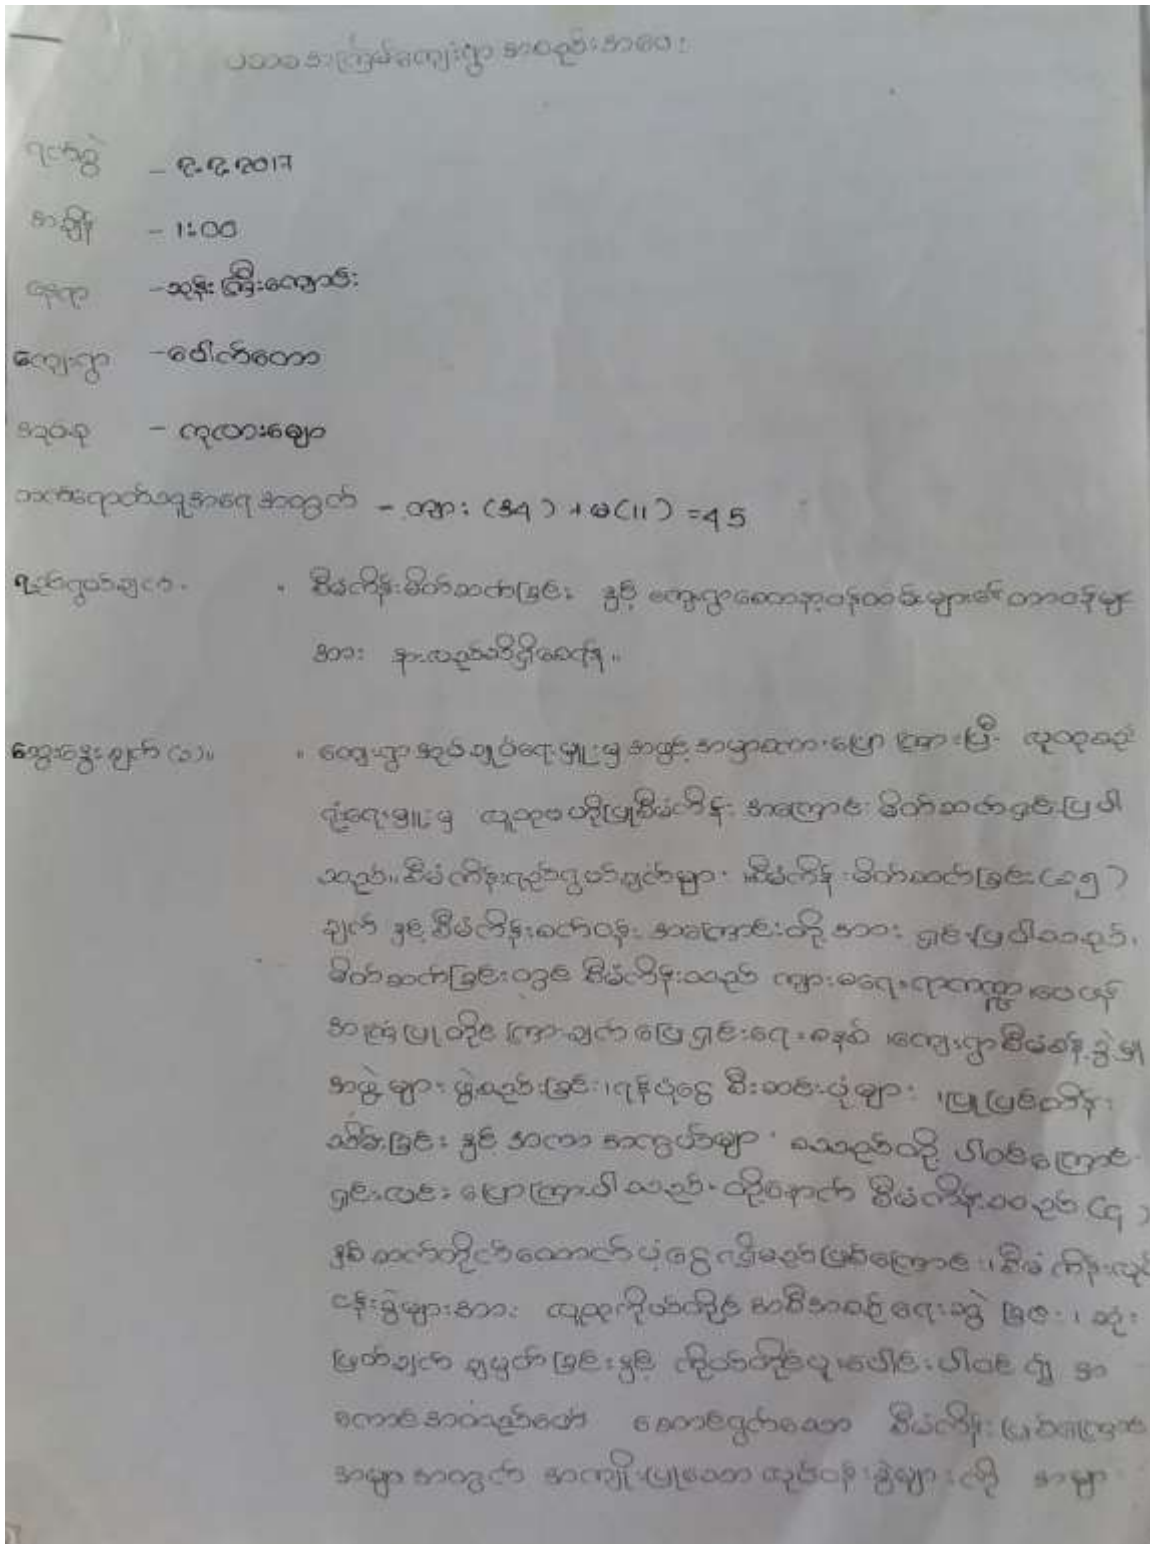 ပထမအကြိမ်ကျေးရွာ အစည်းအဝေး
ရက်စွဲ - ၉.၉.2017
အချိန် - 1:00
နေရာ - ဘုန်းကြီးကျောင်း
ကျေးရွာ - ပေါက်တော
အုပ်စု - ကုလားချော
တက်ရောက်သူအရေအတွက် - ကျား (34) + မ(11) =45
ရည်ရွယ်ချက်။ ။ စီမံကိန်းမိတ်ဆက်ခြင်း နှင့် ကျေးရွာစေတနာ့ဝန်ထမ်းများ၏ တာဝန်များ
အား နားလည်သိရှိစေရန်။
ဆွေးနွေးချက်(၁)။ ။ ကျေးရွာအုပ်ချုပ်ရေးမှူးမှ အဖွင့်အမှာစကားပြောကြားပြီး လူထုစည်း
ရုံးရေးမှူးမှ လူထုဗဟိုပြုစီမံကိန်း အကြောင်း မိတ်ဆက်ရှင်းပြပါ
သည်။ စီမံကိန်းရည်ရွယ်ချက်များ ၊စီမံကိန်းမိတ်ဆက်ခြင်း(၁၅)
ချက် နှင့် စီမံကိန်းစက်ဝန်း အကြောင်းတို့အား ရှင်းပြပါသည်။
မိတ်ဆက်ခြင်းတွင် စီမံကိန်းသည် ကျားမရေးရာကဏ္ဍ ၊ဝေဖန်
အကြံပြုတိုင်ကြားချက် ဖြေရှင်းရေးစနစ် ၊ကျေးရွာစီမံခန့်ခွဲမှု
အဖွဲ့များ ဖွဲ့စည်းခြင်း၊ ရန်ပုံငွေ စီးဆင်းပုံများ ၊ပြုပြင်ထိန်း
သိမ်းခြင်း နှင့် အကာအကွယ်များ စသည်တို့ ပါဝင်ကြောင်း
ရှင်းလင်း ပြောကြားပါသည်။ ထို့နောက် စီမံကိန်းသည် (၄)
နှစ်ဆက်တိုက်ထောက်ပံ့ငွေရရှိမည်ဖြစ်ကြောင်း၊ စီမံကိန်းလုပ်
ငန်းခွဲများအား လူထုကိုယ်တိုင် အစီအစဉ်ရေးဆွဲခြင်း၊ ဆုံး
ဖြတ်ချက် ချမှတ်ခြင်းနှင့် ကိုယ်တိုင်ပူးပေါင်းပါဝင်၍ အ
ကောင်အထည်ဖော် ဆောင်ရွက်သော စီမံကိန်းဖြစ်ကြောင်း
အများအတွက် အကျိုးပြုသော လုပ်ငန်းခွဲများကို အများ